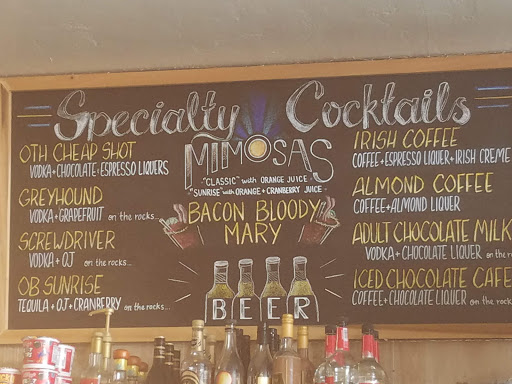 Specialty Cocktails
OTH CHEAP SHOT
VODKA+CHOCOLATE+ESPRESSO LIQUERS
GREYHOUND
VODKA+GRAPEFRUIT on the rocks...
SCREWDRIVER
VODKA+OJ on the rocks...
OB SUNRISE
TEQUILA+OJ+CRANBERRY on the rocks...
MIMOSAS
"CLASSIC" with ORANGE JUICE
"SUNRISE with ORANGE+CRANBERRY JUICE
BACON BLOODY
MARY
BEER
IRISH COFFEE
COFFEE+ESPRESSO LIQUER+IRISH CREME
ALMOND COFFEE
COFFEE+ALMOND LIQUER
ADULT CHOCOLATE MILK
VODKA+CHOCOLATE LIQUER on the
ICED CHOCOLATE CAFE
COFFEE+CHOCOLATE LIQUER on the